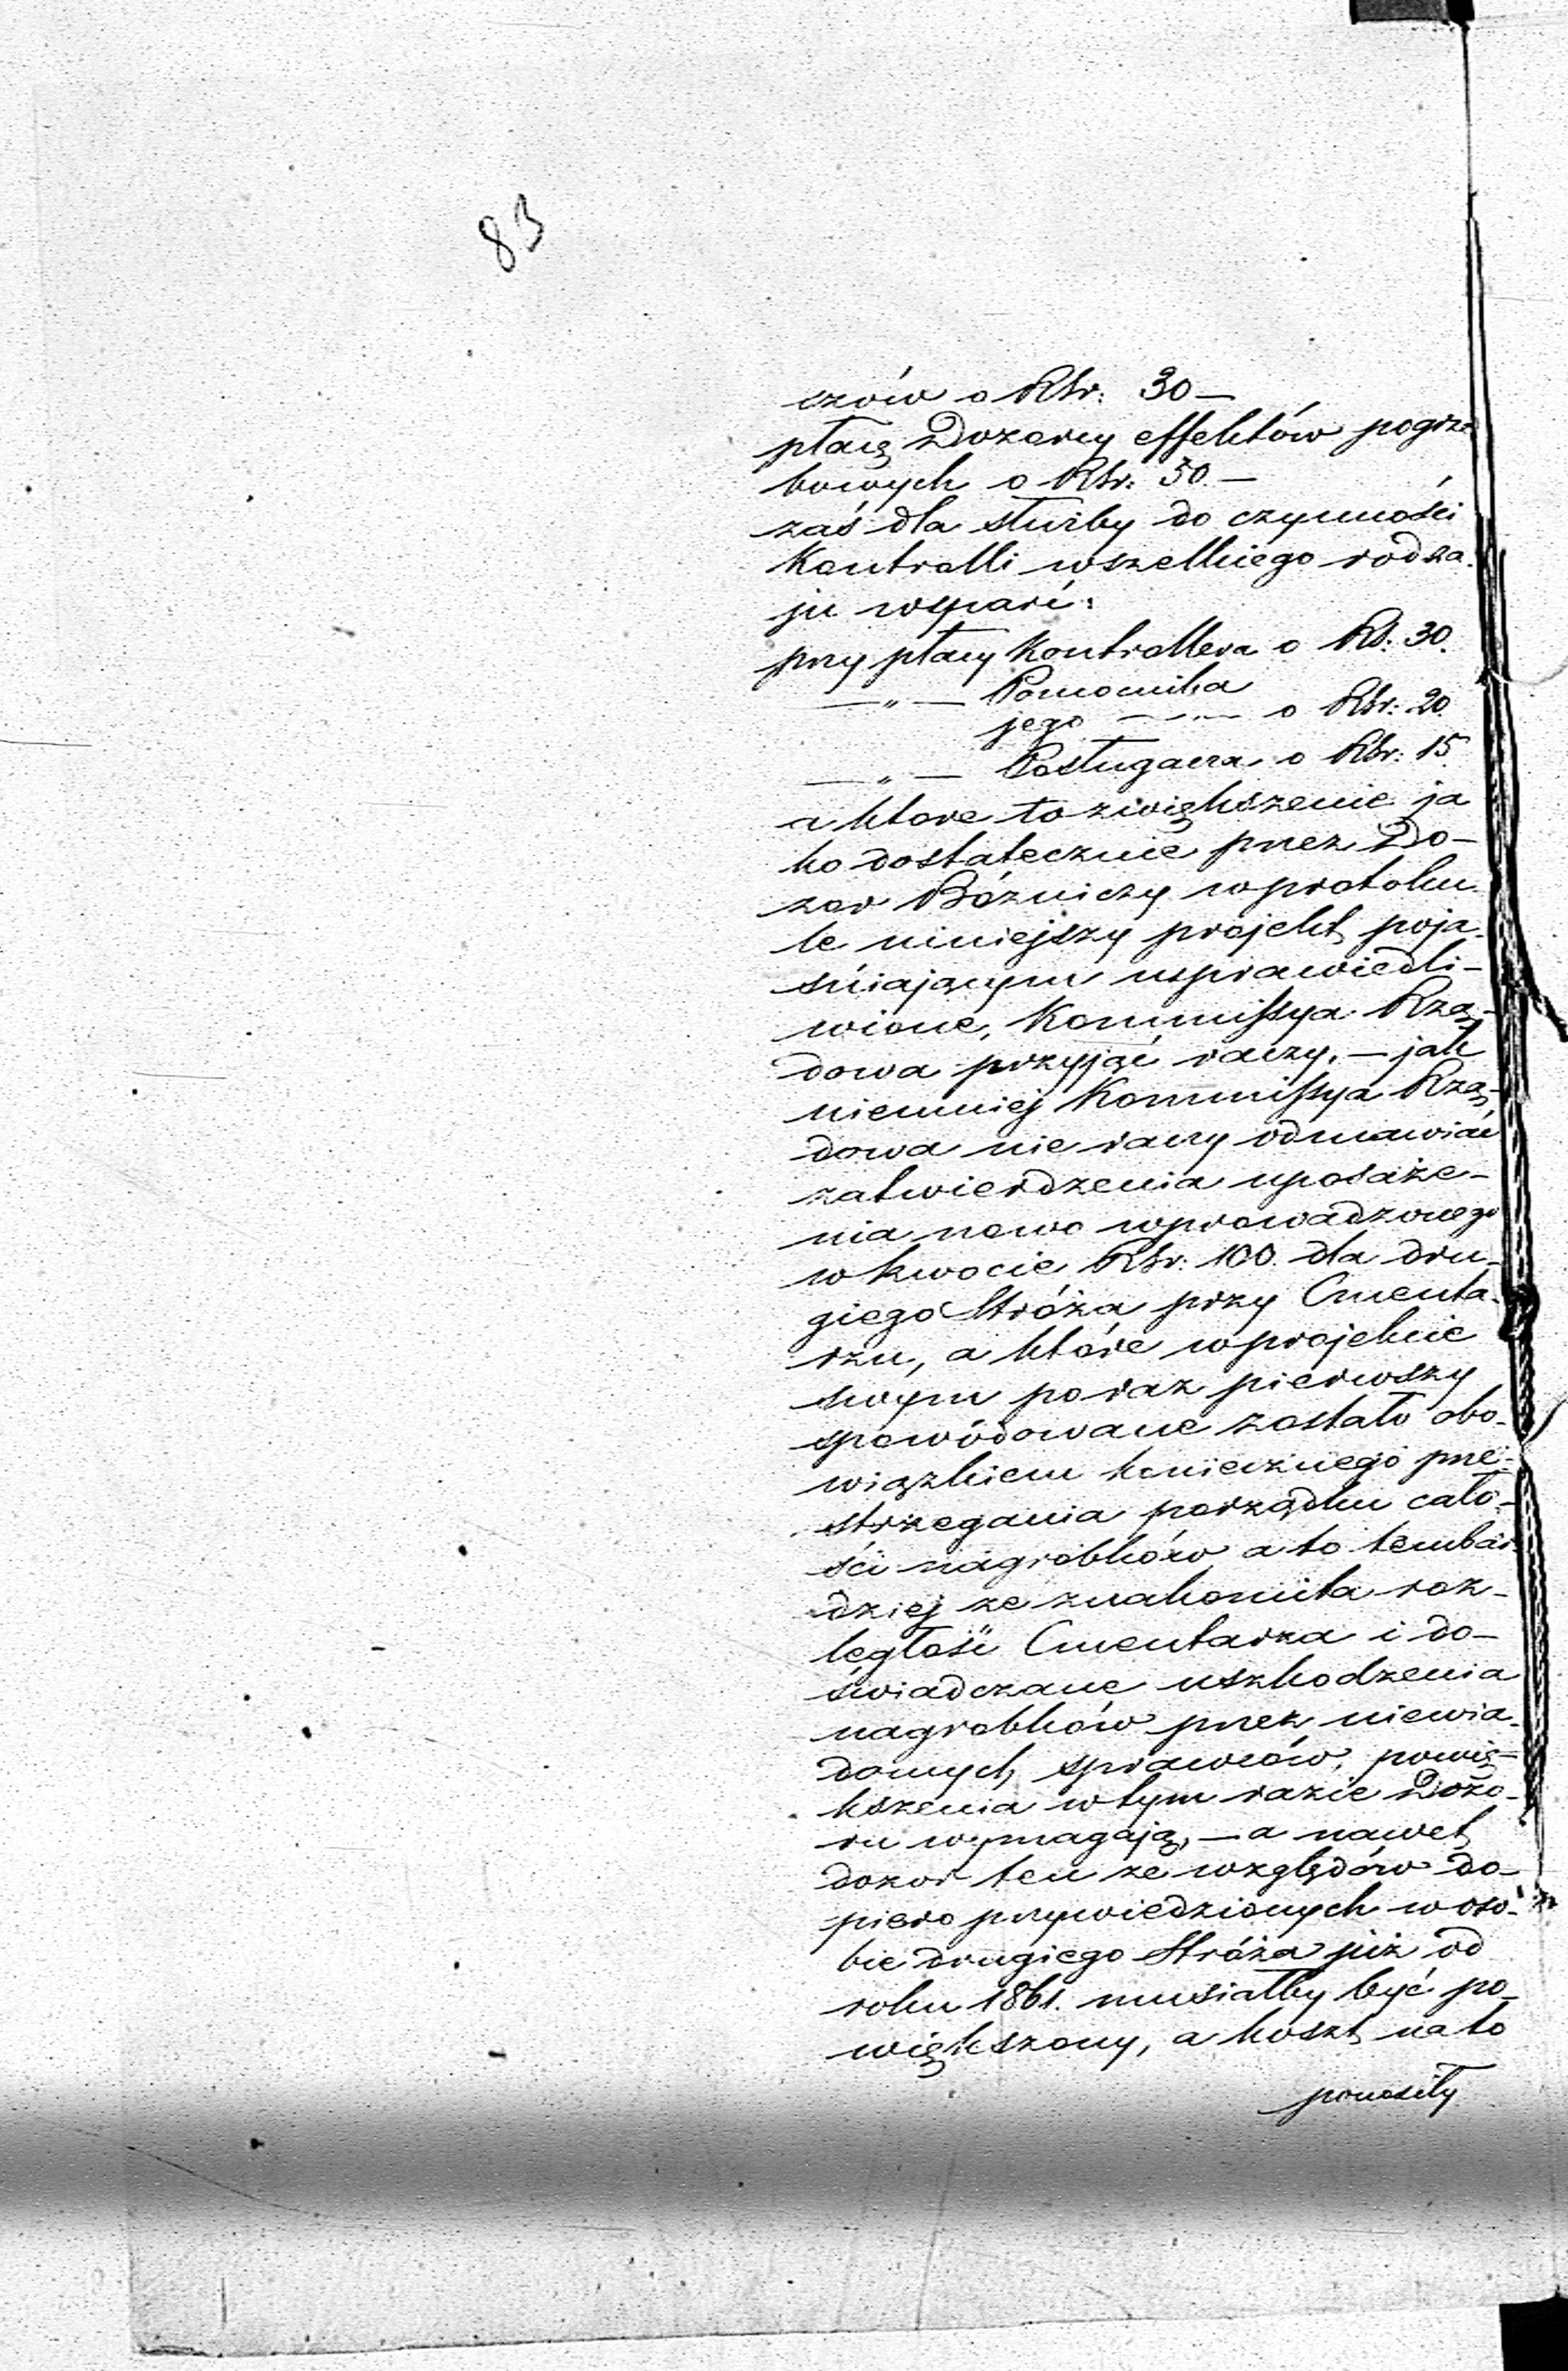 83
czów o Rsr: 30 —
płacę Dozorcy effektów pogrze
bowych o Rsr: 50. —
zaś dla służby do czynności
Kontrolli wszelkiego rodza-
ju wsparć:
przy płacy Kontrollera o Rs: 30.
— " — Pomocnika
jego — " — o Rsr: 20.
— " — Posługacza o Rsr: 15.
a które to zwiększenie ja
ko dostatecznie przez Do-
zór Bóżniczy w protoku
le niniejszy projekt poja-
śniającym usprawiedli-
wione, Kommissya Rzą-
dowa przyjąć raczy, — jak
niemniej Kommissya Rzą-
dowa nie raczy odmawiać
zatwierdzenia uposaże-
nia nowo wprowadzonego
w kwocie Rsr: 100. dla dru-
giego Stróża przy Cmenta-
rzu, a które w projekcie
swym po raz pierwszy
spowodowane zostało obo-
wiązkiem koniecznego prze-
strzegania porządku cało-
ści nagrobków a to tembar-
dziej ze znakomita roz-
ległość Cmentarza i do-
świadczane uszkodzenia
nagrobków przez niewia-
domych sprawców, powię-
kszenia w tym razie Dozo-
ru wymagają, — a nawet
dozór ten ze względów do-
piero przywiedzionych w oso-
bie drugiego Stróża już od
roku 1861. musiałby być po-
większony, a koszt na to
ponosiły